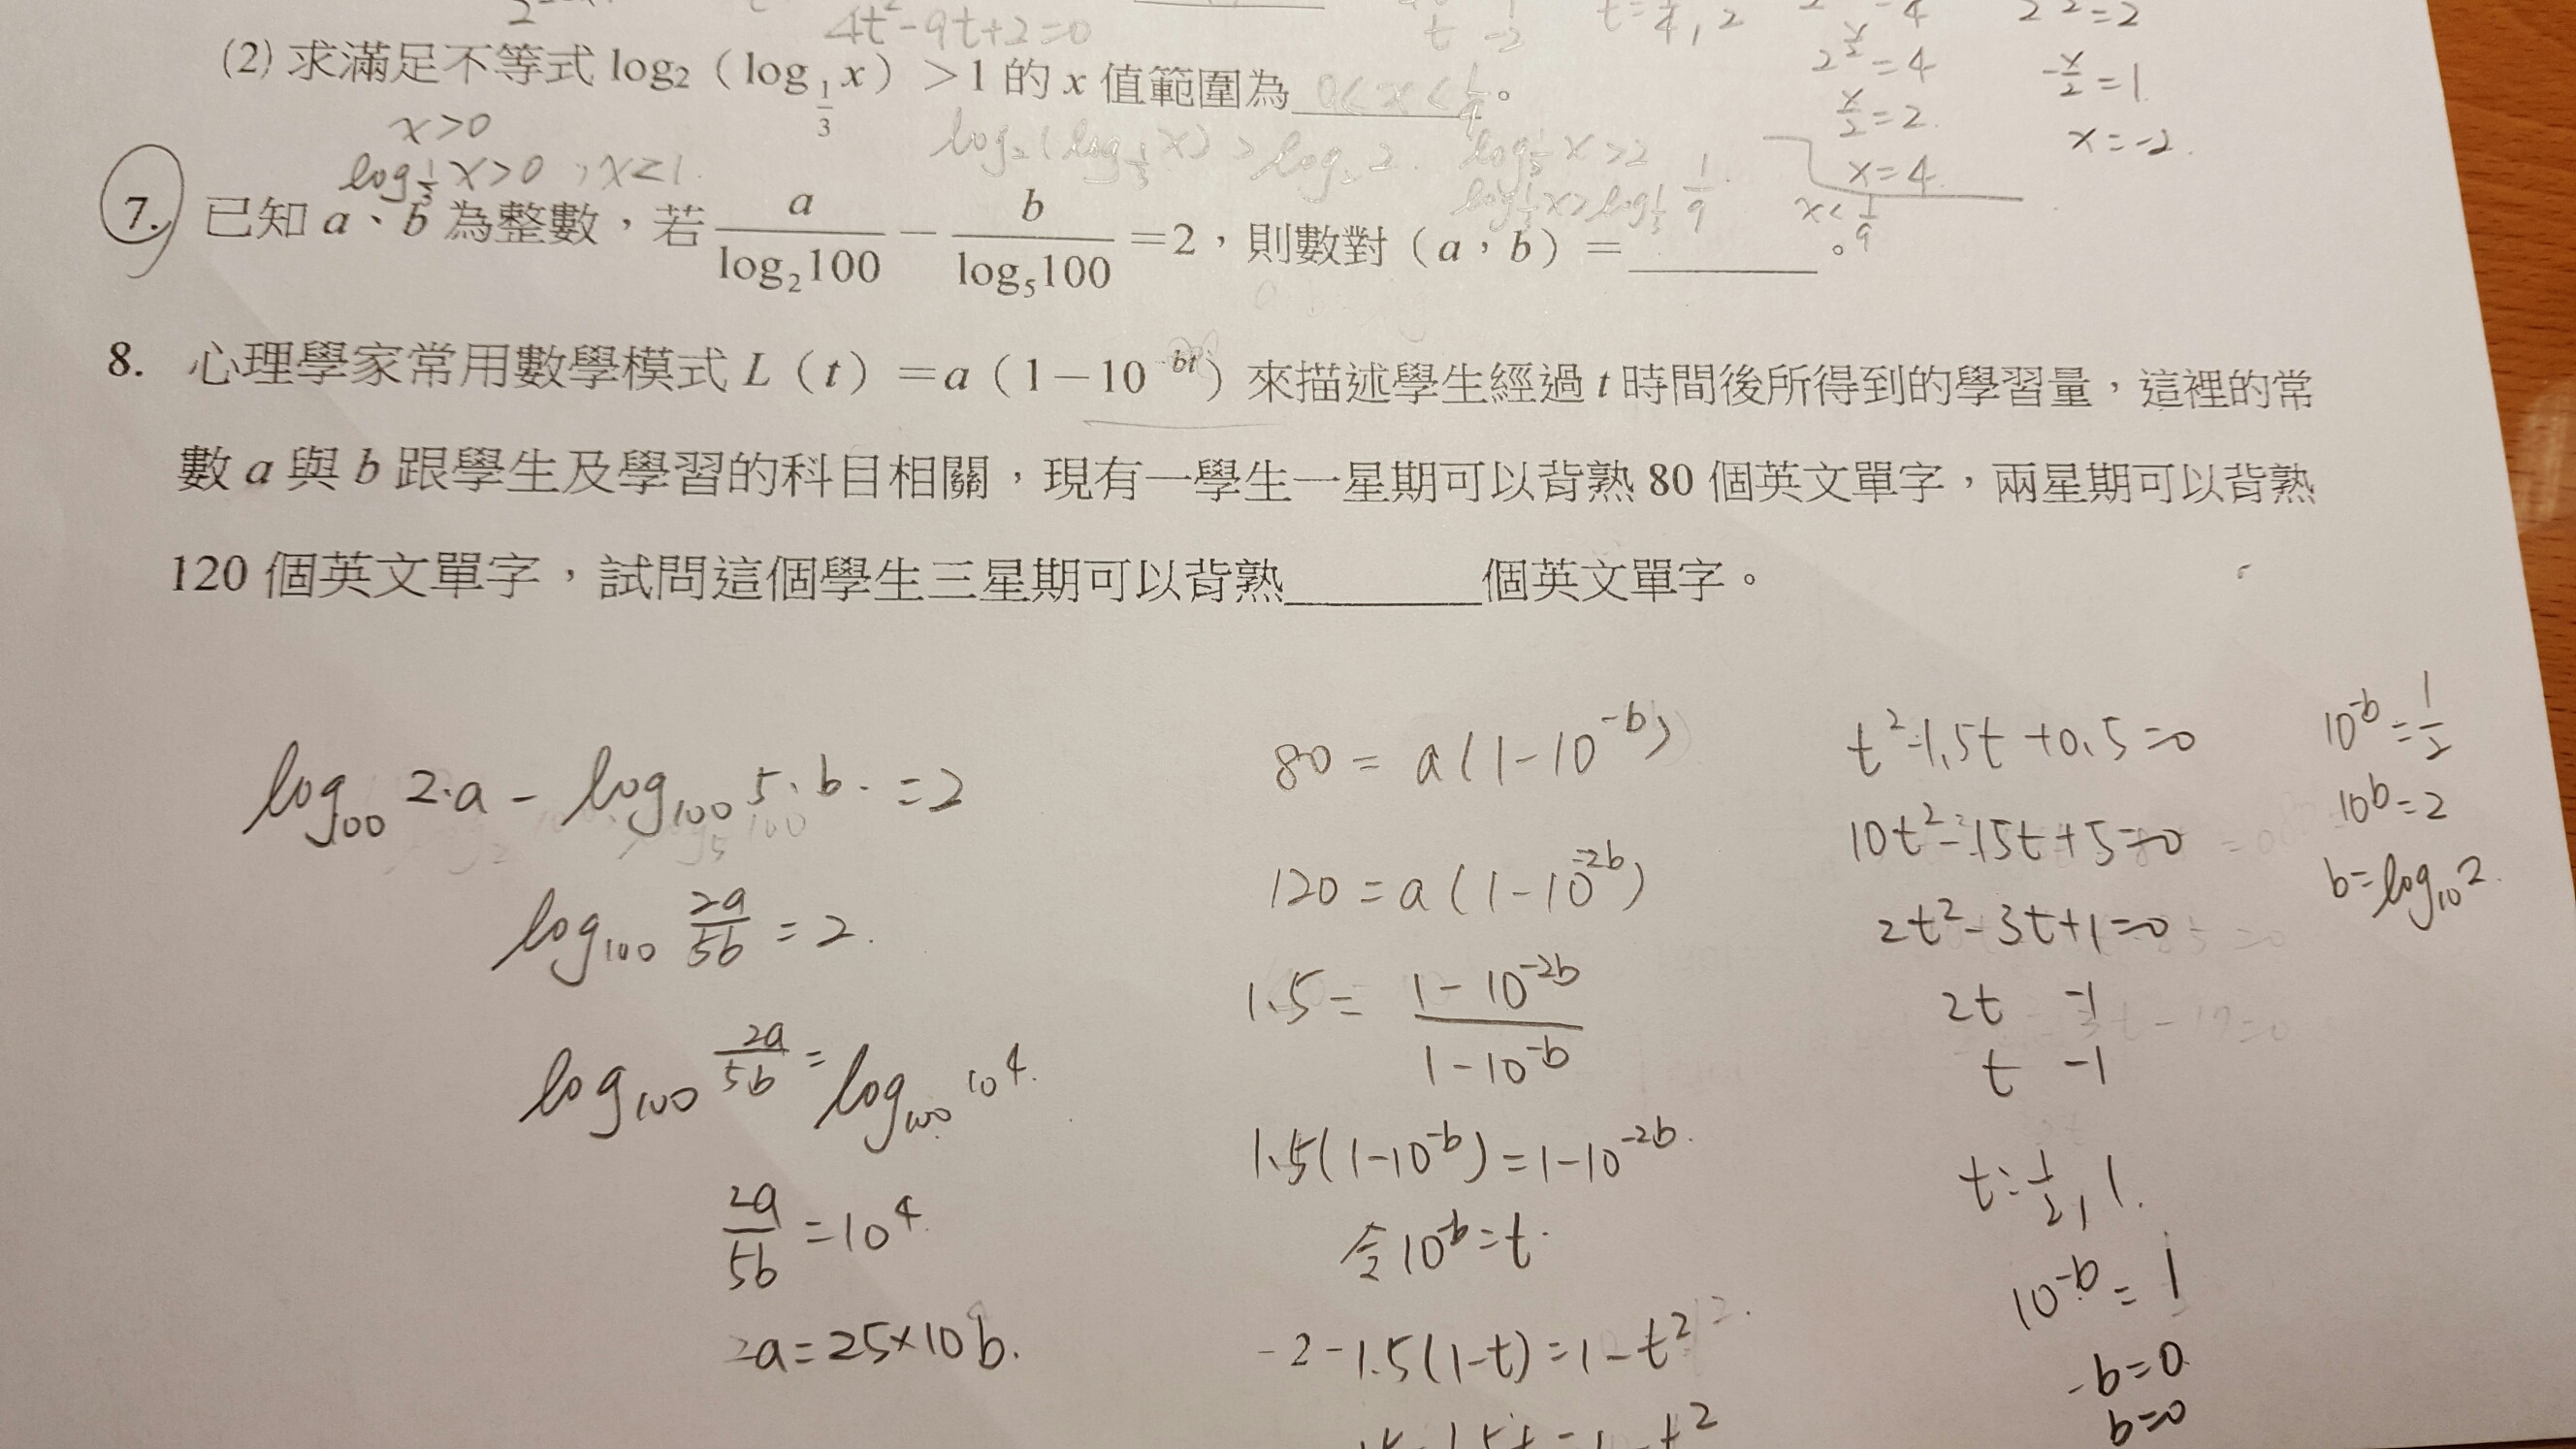 4t²-9t+2=0
t -2
t=1/4, 2
(2) 求滿足不等式 log₂（log_{1/3} x）>1 的 x 值範圍為 0<x<1/9 。
2^{x/2}=4
x/2=2
x=4
-x/2=1
x=-2.
x>0
log_{1/3} x>0 , x<1.
log₂(log_{1/3} x) > log₂ 2. log_{1/3} x>2
log_{1/3} x>log_{1/3} 1/9
x<1/9
7. 已知 a、b 為整數，若 a/log₂100 － b/log₅100 =2，則數對（a，b）=________。
8. 心理學家常用數學模式 L（t）=a（1－10^{-bt}）來描述學生經過 t 時間後所得到的學習量，這裡的常
數 a 與 b 跟學生及學習的科目相關，現有一學生一星期可以背熟 80 個英文單字，兩星期可以背熟
120 個英文單字，試問這個學生三星期可以背熟________個英文單字。
log₁₀₀ 2·a - log₁₀₀ 5·b. =2
log₁₀₀ 2a/5b = 2.
log₁₀₀ 2a/5b = log₁₀₀ 10⁴.
2a/5b =10⁴.
2a=25×10b.
80 = a(1-10^{-b})
120 = a(1-10^{-2b})
1.5= (1-10^{-2b})/(1-10^{-b})
1.5(1-10^{-b})=1-10^{-2b}.
令10^{-b}=t.
1.5(1-t)=1-t²
t²-1.5t+0.5=0
10t²-15t+5=0
2t²-3t+1=0
2t -1
t -1
t=1/2, 1.
10^{-b}=1
-b=0.
b=0
10^{-b}=1/2
10^b=2
b=log₁₀2.